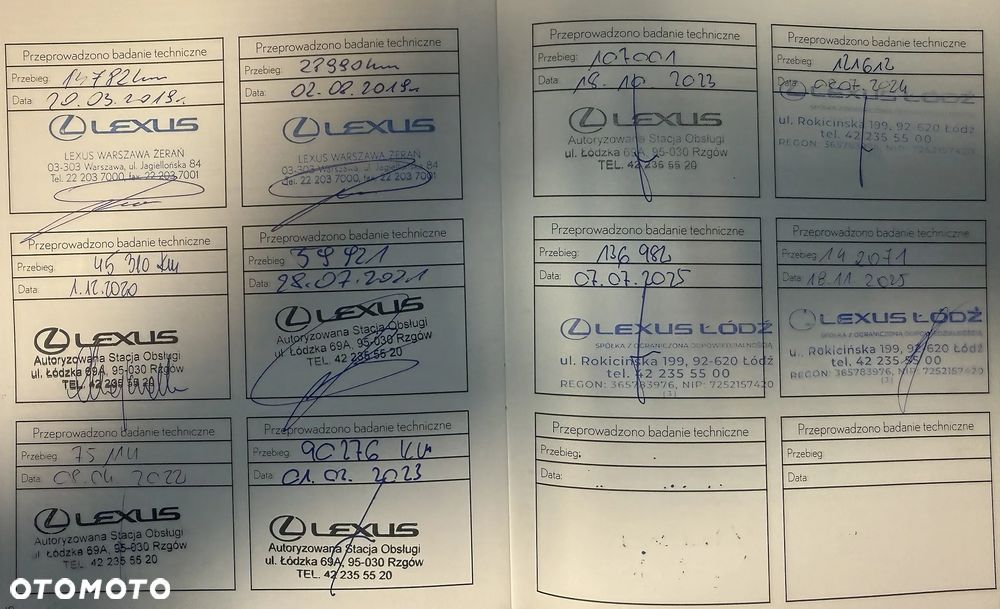 Przeprowadzono badanie techniczne
Przebieg: 14782km
Data: 20.03.2019r.
LEXUS
LEXUS WARSZAWA ŻERAŃ
03-303 Warszawa, ul. Jagiellońska 84
Tel. 22 203 7000, fax 22 203 7001
Przeprowadzono badanie techniczne
Przebieg: 27990km
Data: 02.08.2019r.
LEXUS
LEXUS WARSZAWA ŻERAŃ
03-303 Warszawa, ul. Jagiellońska 84
Tel. 22 203 7000, fax 22 203 7001
Przeprowadzono badanie techniczne
Przebieg: 45 310 km
Data: 1.12.2020
LEXUS
Autoryzowana Stacja Obsługi
ul. Łódzka 69A, 95-030 Rzgów
TEL. 42 235 55 20
Przeprowadzono badanie techniczne
Przebieg: 59 921
Data: 28.07.2021
LEXUS
Autoryzowana Stacja Obsługi
ul. Łódzka 69A, 95-030 Rzgów
TEL. 42 235 55 20
Przeprowadzono badanie techniczne
Przebieg:
Data: 08.04 2022
LEXUS
Autoryzowana Stacja Obsługi
ul. Łódzka 69A, 95-030 Rzgów
TEL. 42 235 55 20
Przeprowadzono badanie techniczne
Przebieg: 90276 km
Data: 01.02.2023
LEXUS
Autoryzowana Stacja Obsługi
ul. Łódzka 69A, 95-030 Rzgów
TEL. 42 235 55 20
Przeprowadzono badanie techniczne
Przebieg: 107001
Data: 18.10.2023
LEXUS
Autoryzowana Stacja Obsługi
ul. Łódzka 69A, 95-030 Rzgów
TEL. 42 235 55 20
Przeprowadzono badanie techniczne
Przebieg: 121612
Data: 08.07.2024
LEXUS ŁÓDŹ
SPÓŁKA Z OGRANICZONĄ ODPOWIEDZIALNOŚCIĄ
ul. Rokicińska 199, 92-620 Łódź
tel. 42 235 55 00
REGON: 365783976, NIP: 7252157420
Przeprowadzono badanie techniczne
Przebieg: 136 982
Data: 07.07.2025
LEXUS ŁÓDŹ
SPÓŁKA Z OGRANICZONĄ ODPOWIEDZIALNOŚCIĄ
ul. Rokicińska 199, 92-620 Łódź
tel. 42 235 55 00
REGON: 365783976, NIP: 7252157420
(3)
Przeprowadzono badanie techniczne
Przebieg: 142071
Data: 18.11.2025
LEXUS ŁÓDŹ
SPÓŁKA Z OGRANICZONĄ ODPOWIEDZIALNOŚCIĄ
ul. Rokicińska 199, 92-620 Łódź
tel. 42 235 55 00
REGON: 365783976, NIP: 7252157420
(3)
Przeprowadzono badanie techniczne
Przebieg:
Data:
Przeprowadzono badanie techniczne
Przebieg:
Data:
OTOMOTO